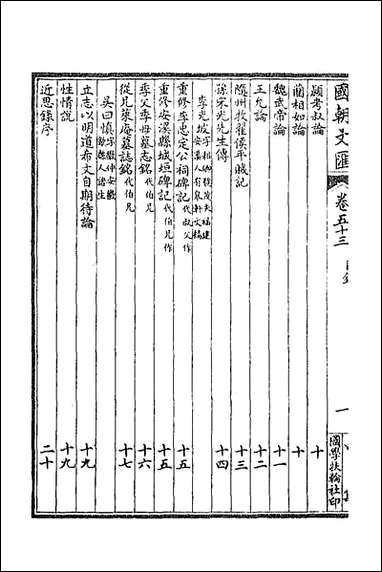 國朝文匯 卷五十三 目錄 一 國學扶輪社印
潁考叔論 十
藺相如論 十
魏武帝論 十一
王允論 十二
隨州牧翟侯平賊記 十三
孫宋光先生傳 十四
李光坡
重修李忠定公祠碑記 代叔父作 十五
重修安溪縣城垣碑記 代伯兄作 十五
季父季母墓志銘 代伯兄 十六
從兄萊庵墓誌銘 代伯兄 十七
吳曰慎 字徽仲安徽歙縣人諸生
立志以明道希文自期待論 十九
性情說 十九
近思錄序 二十